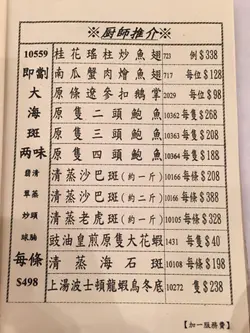 ※厨師推介※
10559
即劏
大
海
斑
两味
翡翠
清蒸
炒球
頭腩
每條
$498
桂花瑤柱炒魚翅 723 例$338
南瓜蟹肉燴魚翅 717 每位$128
原條遼參扣鵝掌 2029 每位$98
原隻二頭鮑魚 10362 每隻$268
原隻三頭鮑魚 10363 每隻$208
原隻四頭鮑魚 10364 每隻$188
清蒸沙巴斑(約一斤) 10166 每條$208
清蒸沙巴斑(約二斤) 10166 每條$388
清蒸老虎斑(約一斤) 10105 每條$328
豉油皇煎原隻大花蝦 1431 每隻$40
清蒸海石斑 10108 每條$198
上湯波士頓龍蝦烏冬底 10272 隻$238
【加一服務費】